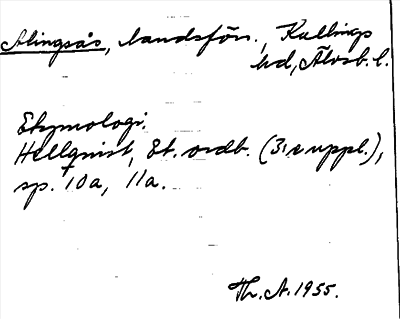 Alingsås, landsförs., Kullings
hd, Älvsb. l.
Etymologi.
Hellquist, Et. ordb. (3:e uppl.),
sp. 10a, 11a.
Th. A. 1955.